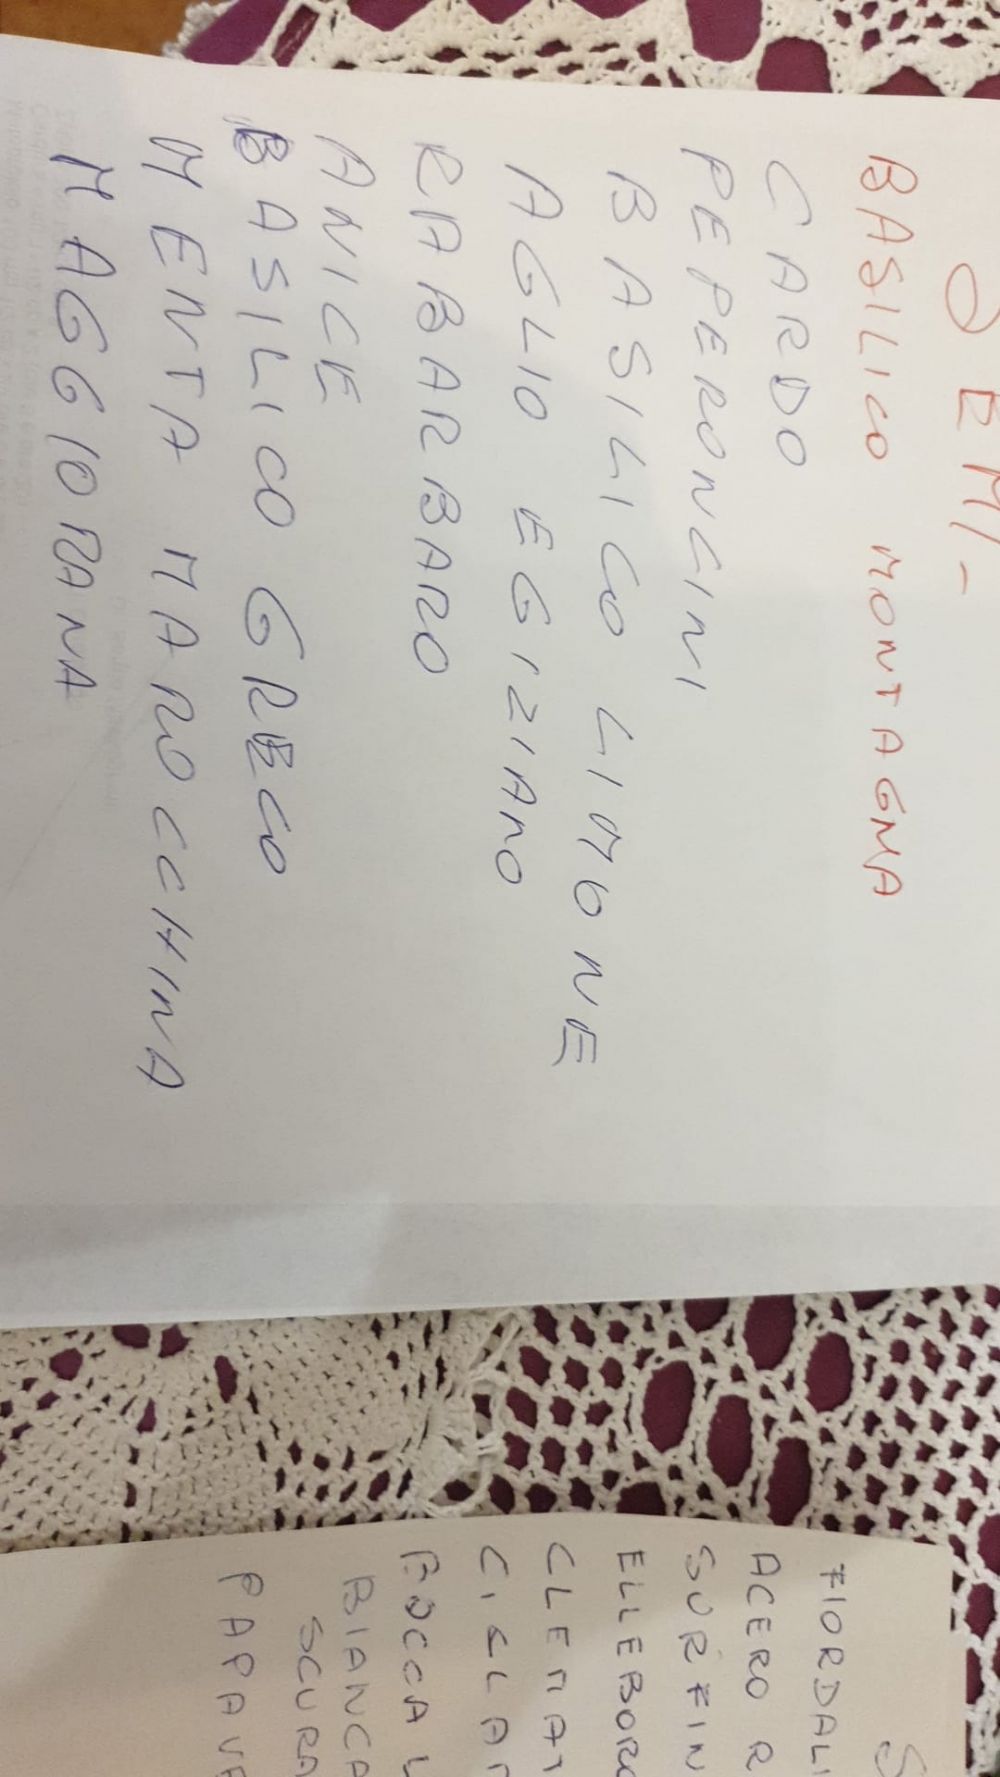 SEMI-
BASILICO MONTAGNA
CARDO
PEPERONCINI
BASILICO LIMONE
AGLIO EGIZIANO
RABARBARO
ANICE
BASILICO GRECO
MENTA MAROCCHINA
MAGGIORANA
S
FIORDALI
ACERO R
SURFIN
ELLEBORO
CLEMAT
CICLAM
BOCCA L
BIANCA
SCURA
PAPAVE